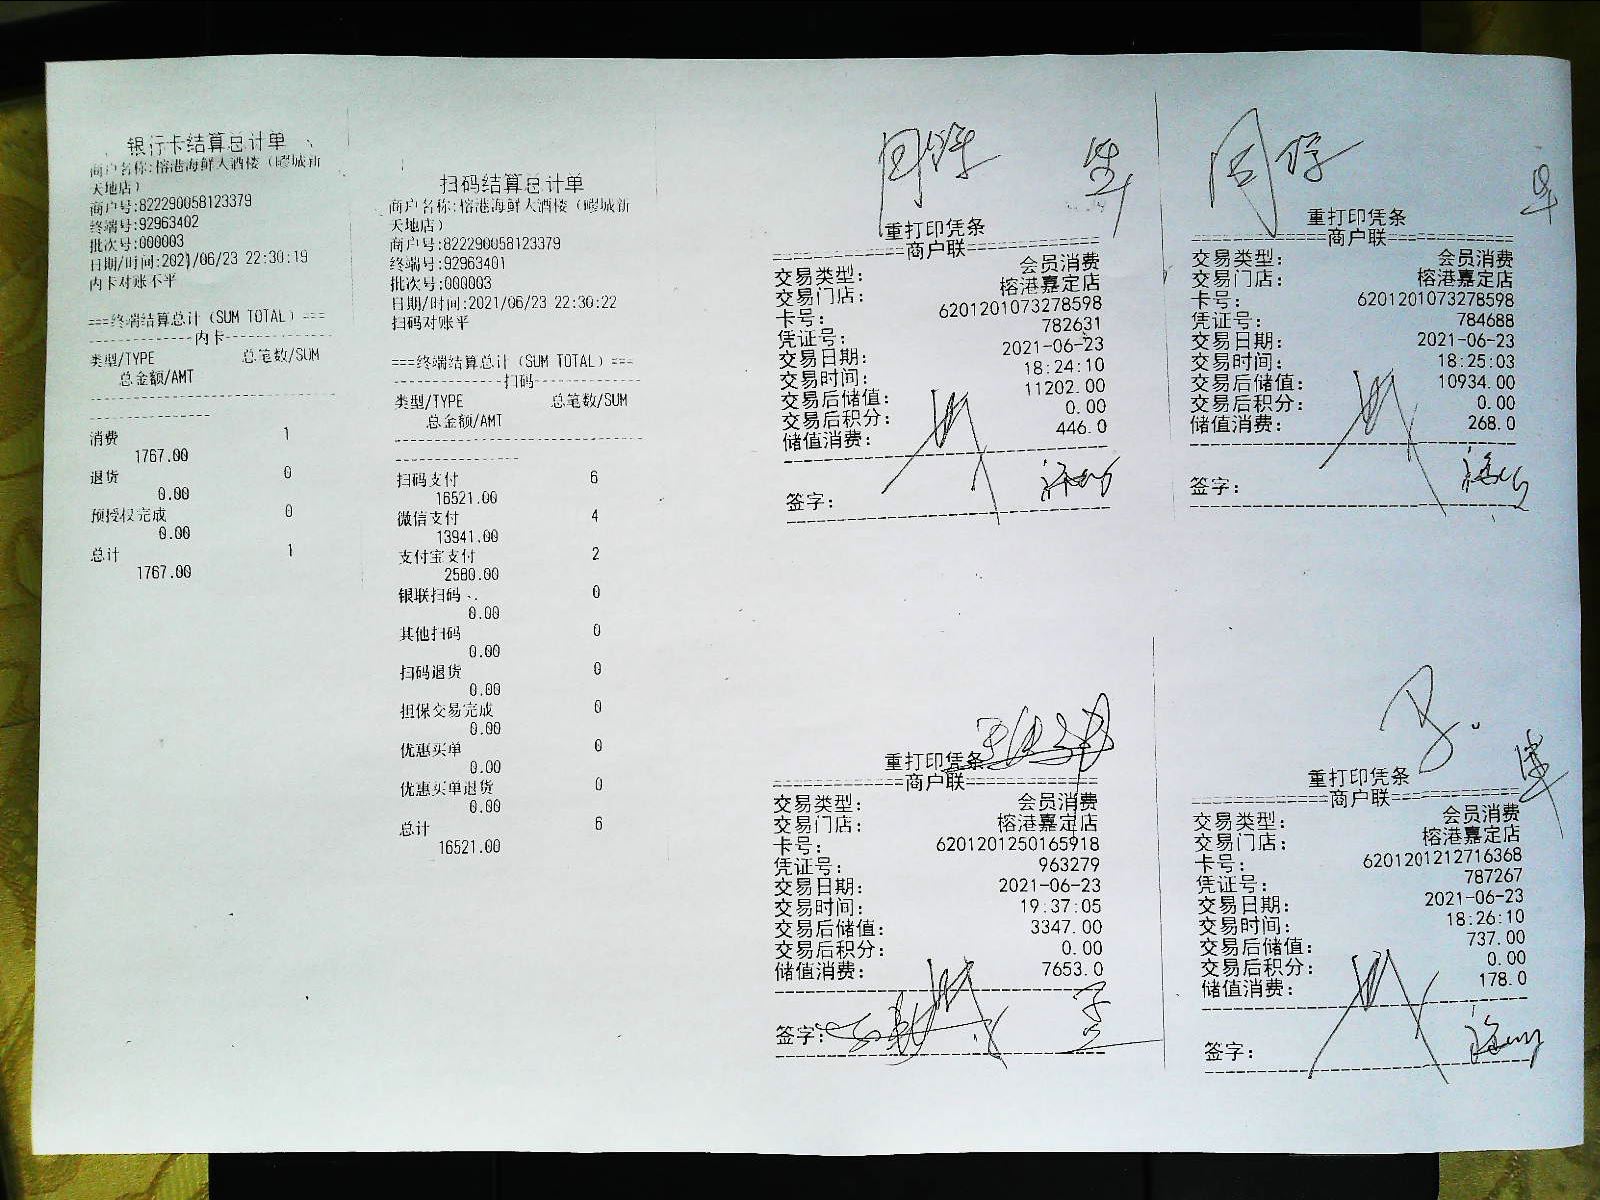 银行卡结算总计单
商户名称:榕港海鲜大酒楼（疁城新
天地店）
商户号:822290058123379
终端号:92963402
批次号:000003
日期/时间:2021/06/23 22:30:19
内卡对账不平
===终端结算总计（SUM TOTAL）===
----------------内卡----------------
类型/TYPE 总笔数/SUM
总金额/AMT
消费 1
1767.00
退货 0
0.00
预授权完成 0
0.00
总计 1
1767.00
扫码结算总计单
商户名称:榕港海鲜大酒楼（疁城新
天地店）
商户号:822290058123379
终端号:92963401
批次号:000003
日期/时间:2021/06/23 22:30:22
扫码对账平
===终端结算总计（SUM TOTAL）===
----------------扫码----------------
类型/TYPE 总笔数/SUM
总金额/AMT
扫码支付 6
16521.00
微信支付 4
13941.00
支付宝支付 2
2580.00
银联扫码 0
0.00
其他扫码 0
0.00
扫码退货 0
0.00
担保交易完成 0
0.00
优惠买单 0
0.00
优惠买单退货 0
0.00
总计 6
16521.00
重打印凭条
=============商户联=============
交易类型: 会员消费
交易门店: 榕港嘉定店
卡号: 6201201073278598
凭证号: 782631
交易日期: 2021-06-23
交易时间: 18:24:10
交易后储值: 11202.00
交易后积分: 0.00
储值消费: 446.0
签字:
重打印凭条
=============商户联=============
交易类型: 会员消费
交易门店: 榕港嘉定店
卡号: 6201201073278598
凭证号: 784688
交易日期: 2021-06-23
交易时间: 18:25:03
交易后储值: 10934.00
交易后积分: 0.00
储值消费: 268.0
签字:
重打印凭条
=============商户联=============
交易类型: 会员消费
交易门店: 榕港嘉定店
卡号: 6201201250165918
凭证号: 963279
交易日期: 2021-06-23
交易时间: 19:37:05
交易后储值: 3347.00
交易后积分: 0.00
储值消费: 7653.0
签字:
重打印凭条
=============商户联=============
交易类型: 会员消费
交易门店: 榕港嘉定店
卡号: 6201201212716368
凭证号: 787267
交易日期: 2021-06-23
交易时间: 18:26:10
交易后储值: 737.00
交易后积分: 0.00
储值消费: 178.0
签字: